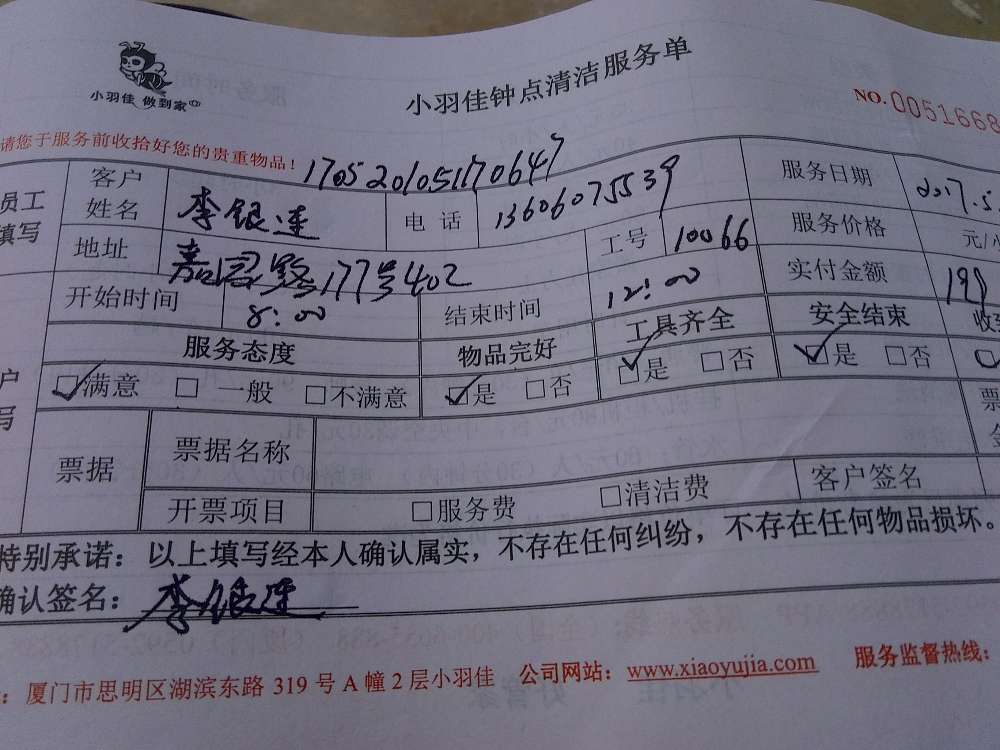 小羽佳 做到家
小羽佳钟点清洁服务单
NO.0051668
请您于服务前收拾好您的贵重物品！
1705201051170647
员工
填写
客户
姓名
李银连
电话
13606075539
服务日期
2017.5
地址
嘉园路177号402
工号
10066
服务价格
元/小
开始时间
8:00
结束时间
12:00
实付金额
199
服务态度
物品完好
工具齐全
安全结束
满意 一般 不满意
是 否
是 否
是 否
票据
票据名称
开票项目
服务费
清洁费
客户签名
特别承诺：以上填写经本人确认属实，不存在任何纠纷，不存在任何物品损坏。
确认签名：李银连
厦门市思明区湖滨东路 319 号 A 幢 2 层小羽佳 公司网站：www.xiaoyujia.com 服务监督热线：